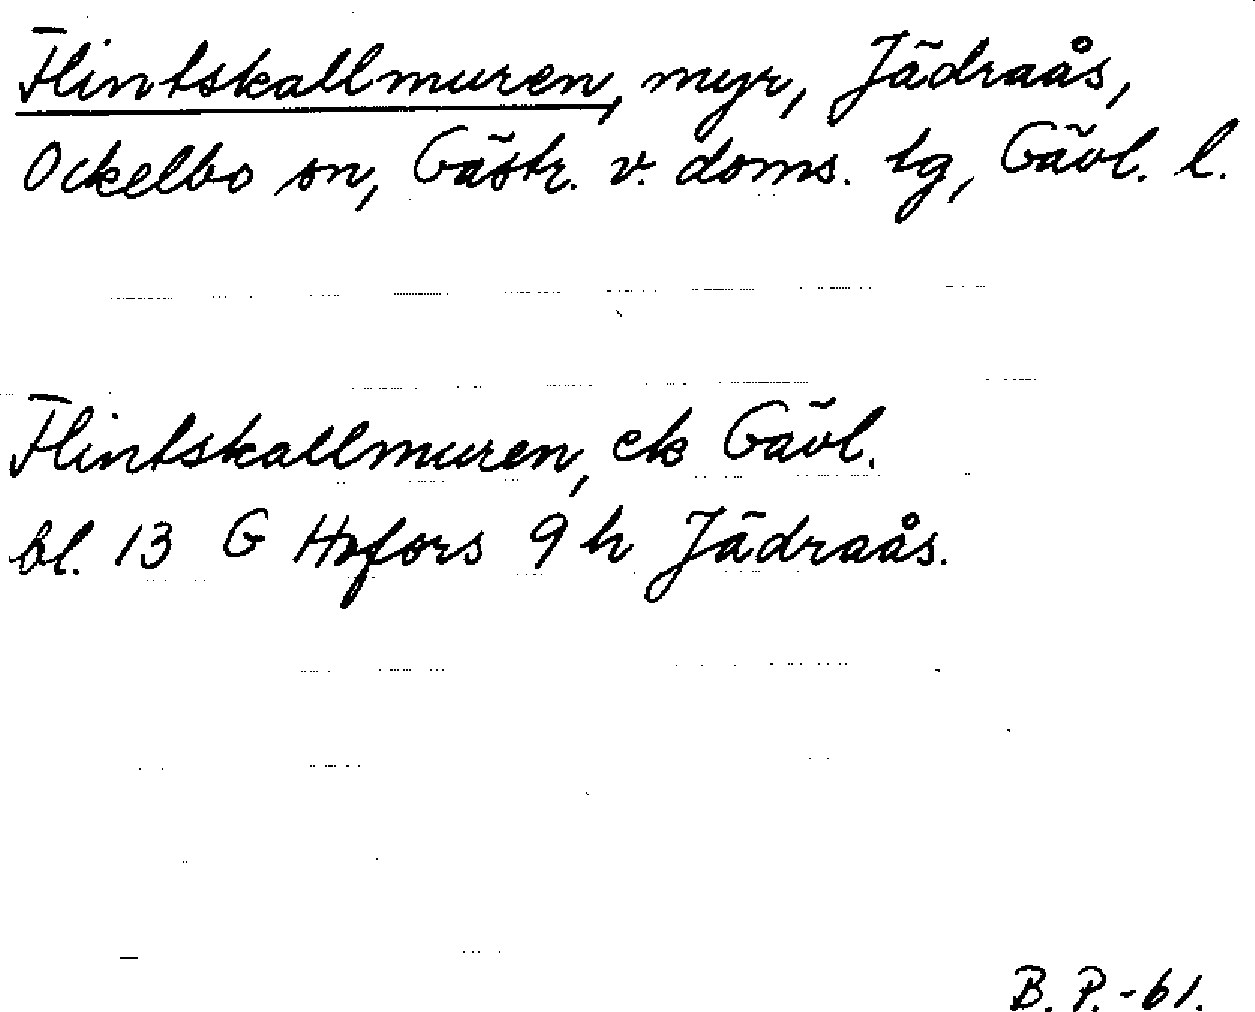 Flintskallmuren, myr, Jädraås,
Ockelbo sn, Gästr. v. doms. tg, Gävl. l.
Flintskallmuren, ek Gävl.
bl. 13 G Hofors 9 h Jädraås.
B. P. -61.